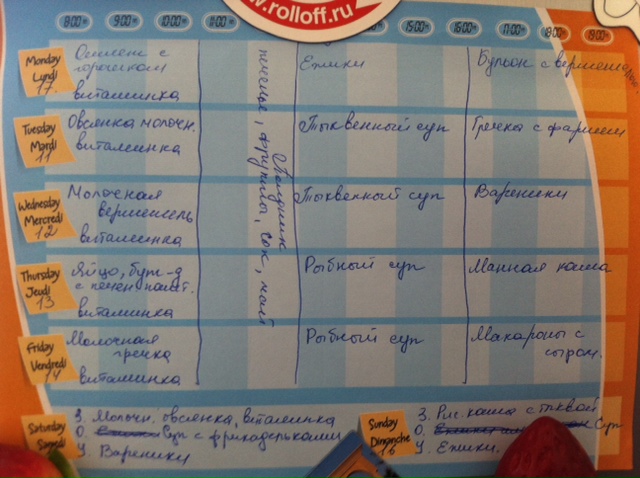 www.rolloff.ru
8:00 9:00 10:00 11:00 15:00 16:00 17:00 18:00 19:00
Monday
Lundi
17.
Омлет с
горошком
витаминка
Ежики
Бульон с вермишелью.
Tuesday
Mardi
11
Овсянка молочн.
витаминка
Тыквенный суп
Гречка с фаршем
Wednesday
Mercredi
12
Молочная
вермишель
витаминка
Тыквенный суп
Вареники
Thursday
Jeudi
13
Яйцо, бут-д
с печен.пашт.
витаминка
Рыбный суп
Манная каша
Friday
Vendredi
14
Молочная
гречка
витаминка
Рыбный суп
Макароны с
сыром.
Полдник
печенье, фрукты, сок, чай
Saturday
Samedi
З. Молочн. овсянка, витаминка
О. Суп с фрикадельками
У. Вареники
Sunday
Dimanche
16
З. Рис. каша с тыквой
О. Суп
У. Ежики.